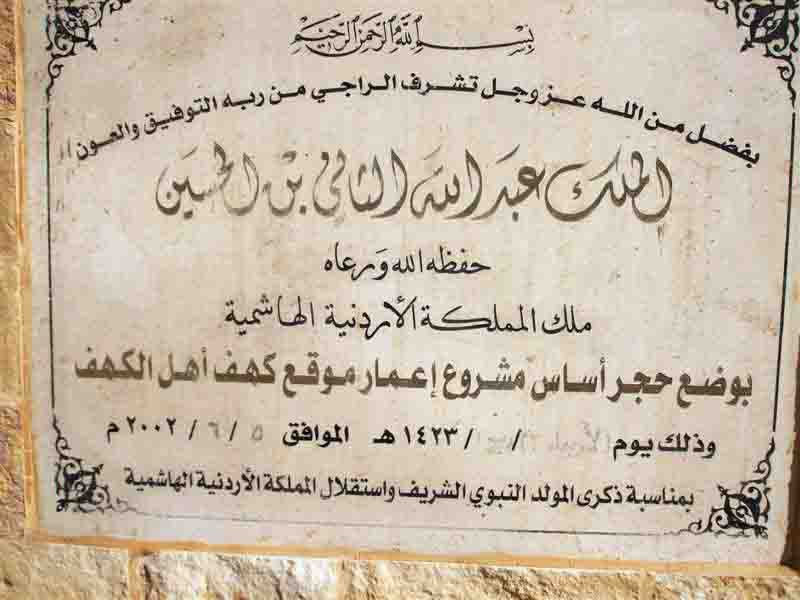 بسم الله الرحمن الرحيم
بفضل من الله عز وجل تشرف الراجي من ربه التوفيق والعون
الملك عبد الله الثاني بن الحسين
حفظه الله ورعاه
ملك المملكة الأردنية الهاشمية
بوضع حجر أساس مشروع إعمار موقع كهف أهل الكهف
وذلك يوم / / ١٤٢٣ هـ الموافق ٥ / ٦ / ٢٠٠٢ م
بمناسبة ذكرى المولد النبوي الشريف واستقلال المملكة الأردنية الهاشمية